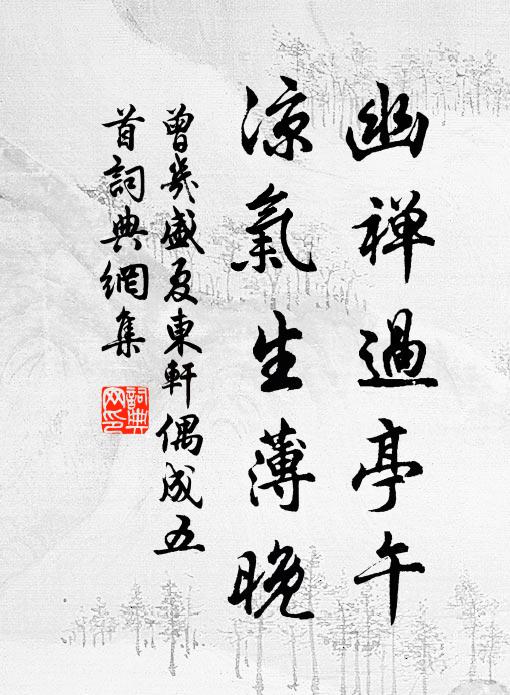 幽禅過亭午
凉氣生薄晚
曾幾盛夏東軒偶成五
首詞典網集
詞典
网印